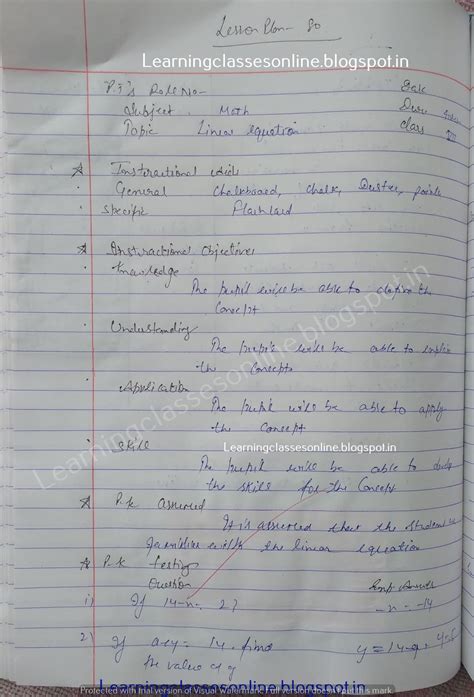 Lesson Plan - 80
Learningclassesonline.blogspot.in
P.T's Role No- Date
Subject . Math
Topic Linear equation class VIII
Instructional aids
General Chalkboard, chalk, Duster, pointer
Specific Flashcard
Instructional Objectives
Knowledge
The pupil will be able to define the
Concept
Understanding
The pupil will be able to explain
the Concepts
Application
The pupil will be able to apply
the Concept
Learningclassesonline.blogspot.in
Skill
The pupil will be able to
the skill for the Concept
P.k assured
It is assured that the student
familiar with the linear equation
P.k testing
Question
i) If 14-n = 2?
2) If a+y = 14. find
the value of y
Learningclassesonline.blogspot.in
Learningclassesonline.blogspot.in
Protected with trial version of Visual Watermark. Full version doesn't put this mark.